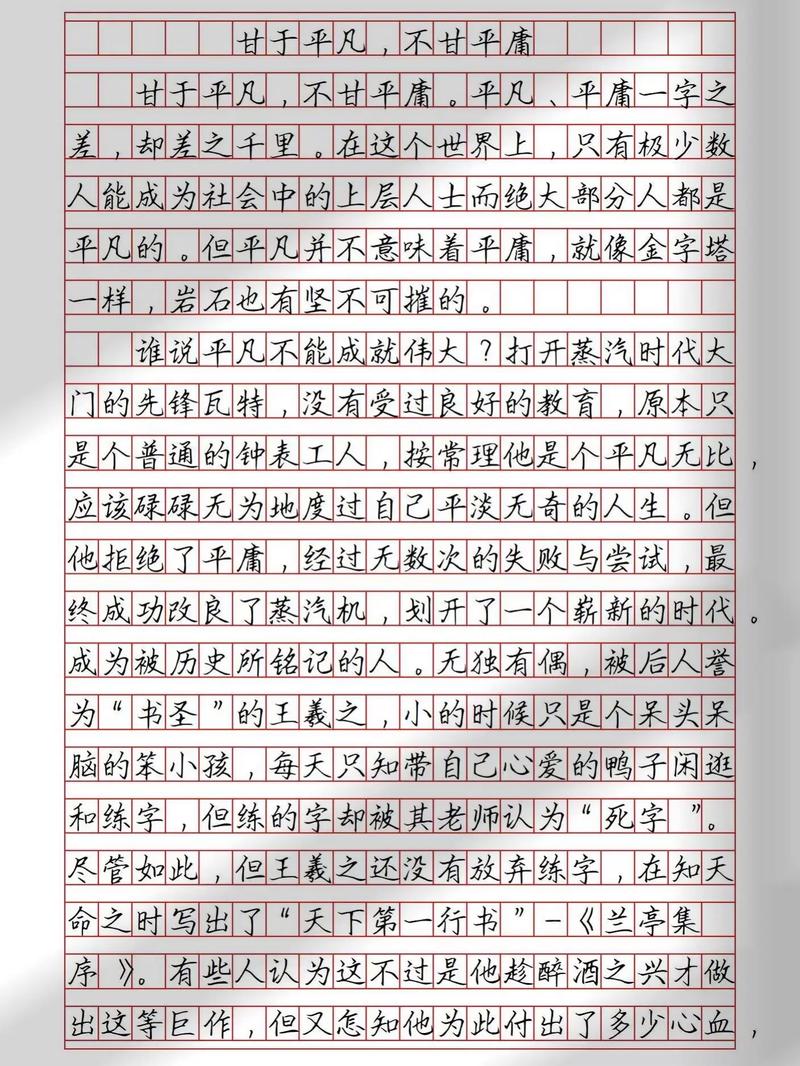 甘于平凡，不甘平庸
甘于平凡，不甘平庸。平凡、平庸一字之
差，却差之千里。在这个世界上，只有极少数
人能成为社会中的上层人士而绝大部分人都是
平凡的。但平凡并不意味着平庸，就像金字塔
一样，岩石也有坚不可摧的。
谁说平凡不能成就伟大？打开蒸汽时代大
门的先锋瓦特，没有受过良好的教育，原本只
是个普通的钟表工人，按常理他是个平凡无比，
应该碌碌无为地度过自己平淡无奇的人生。但
他拒绝了平庸，经过无数次的失败与尝试，最
终成功改良了蒸汽机，划开了一个崭新的时代。
成为被历史所铭记的人。无独有偶，被后人誉
为“书圣”的王羲之，小的时候只是个呆头呆
脑的笨小孩，每天只知带自己心爱的鸭子闲逛
和练字，但练的字却被其老师认为“死字”。
尽管如此，但王羲之还没有放弃练字，在知天
命之时写出了“天下第一行书”-《兰亭集
序》。有些人认为这不过是他趁醉酒之兴才做
出这等巨作，但又怎知他为此付出了多少心血，